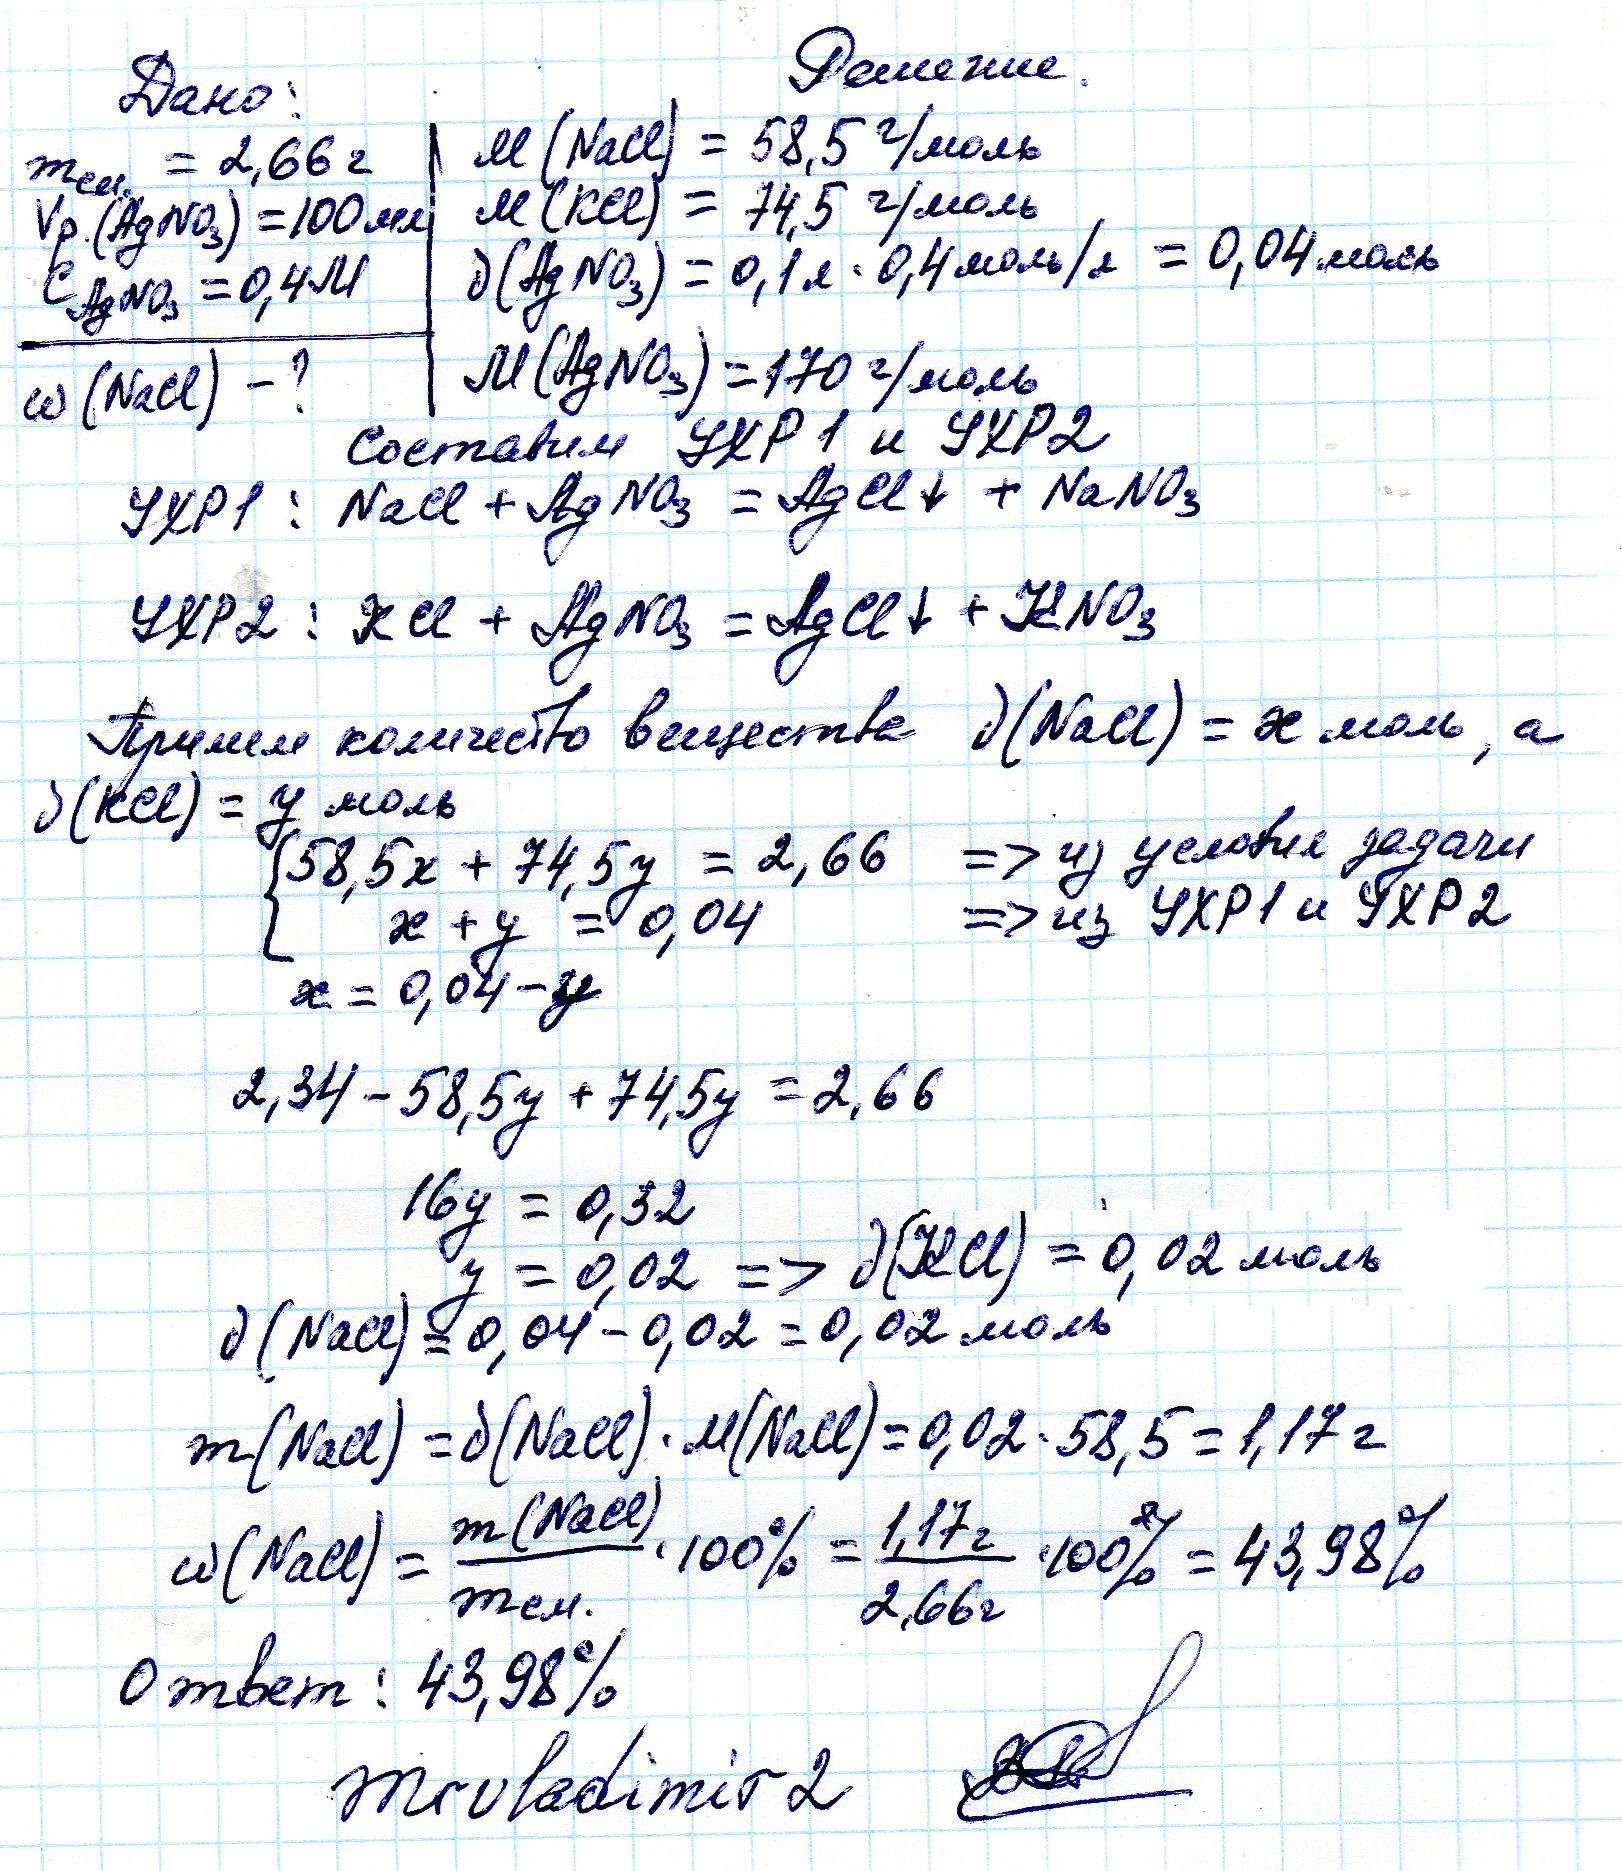 Дано:
Решение.
mсм. = 2,66 г
Vр.(AgNO3) = 100 мл
CAgNO3 = 0,4 М
ω(NaCl) - ?
M(NaCl) = 58,5 г/моль
M(KCl) = 74,5 г/моль
∂(AgNO3) = 0,1 л · 0,4 моль/л = 0,04 моль
M(AgNO3) = 170 г/моль
Составим УХР 1 и УХР2
УХР1 : NaCl + AgNO3 = AgCl↓ + NaNO3
УХР2 : KCl + AgNO3 = AgCl↓ + KNO3
Примем количество вещества ∂(NaCl) = x моль, а
∂(KCl) = y моль
58,5x + 74,5y = 2,66 => из условия задачи
x + y = 0,04 => из УХР1 и УХР2
x = 0,04 - y
2,34 - 58,5y + 74,5y = 2,66
16y = 0,32
y = 0,02 => ∂(KCl) = 0,02 моль
∂(NaCl) = 0,04 - 0,02 = 0,02 моль
m(NaCl) = ∂(NaCl) · M(NaCl) = 0,02 · 58,5 = 1,17 г
ω(NaCl) = m(NaCl)/mсм. · 100% = 1,17г/2,66г · 100% = 43,98%
Ответ : 43,98%
mrvladimir2